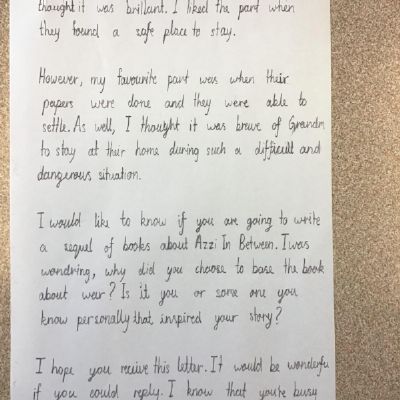 thought it was brillant. I liked the part when
they found a safe place to stay.
However, my favourite part was when their
papers were done and they were able to
settle. As well, I thought it was brave of Grandma
to stay at their home during such a difficult and
dangerous situation.
I would like to know if you are going to write
a sequel of books about Azzi In Between. I was
wondring, why did you choose to base the book
about wear? Is it you or some one you
know personally that inspired your story?
I hope you receive this letter. It would be wonderfu
if you could reply. I know that you're busy